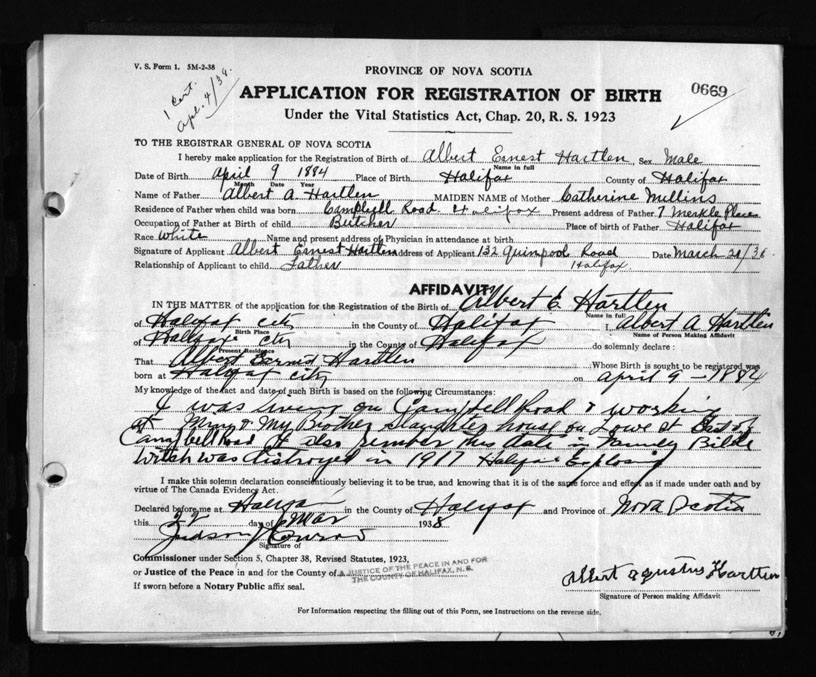 V. S. Form 1. 5M-2-38
1 Cert.
Apl. 4/39.
PROVINCE OF NOVA SCOTIA
APPLICATION FOR REGISTRATION OF BIRTH
0669
Under the Vital Statistics Act, Chap. 20, R. S. 1923
TO THE REGISTRAR GENERAL OF NOVA SCOTIA
I hereby make application for the Registration of Birth of Albert Ernest Hartlen, Sex Male
Name in full
Date of Birth April 9 1884 Place of Birth Halifax County of Halifax
Month Date Year
Name of Father Albert A. Hartlen MAIDEN NAME of Mother Catherine Mullins
Residence of Father when child was born Campbell Road Halifax Present address of Father 7 Merkle Place
Occupation of Father at Birth of child Butcher Place of birth of Father Halifax
Race White Name and present address of Physician in attendance at birth
Signature of Applicant Albert Ernest Hartlen Address of Applicant 132 Quinpool Road Date March 21/38
Relationship of Applicant to child Father Halifax.
AFFIDAVIT
IN THE MATTER of the application for the Registration of the Birth of Albert E. Hartlen
Name in full
of Halifax City in the County of Halifax I, Albert A Hartlen
Birth Place Name of Person Making Affidavit
of Halifax City in the County of Halifax do solemnly declare:
Present Residence
That Albert Ernest Hartlen Whose Birth is sought to be registered was
born at Halifax City on April 9 - 1884
My knowledge of the fact and date of such Birth is based on the following Circumstances:
I was living on Campbell Road & working
at My Brother Slaughter house on Lowe St East of
Campbell Road I also rember this date in Family Bible
Witch was distroyed in 1917 Halifax Explosing
I make this solemn declaration conscientiously believing it to be true, and knowing that it is of the same force and effect as if made under oath and by
virtue of The Canada Evidence Act.
Declared before me at Halifax in the County of Halifax and Province of Nova Scotia
this 22 day of Mar 1938
Judson Conrod
Signature of
Commissioner under Section 5, Chapter 38, Revised Statutes, 1923,
or Justice of the Peace in and for the County of A JUSTICE OF THE PEACE IN AND FOR
THE COUNTY OF HALIFAX, N. S.
If sworn before a Notary Public affix seal.
Albert Agustus Hartlen
Signature of Person making Affidavit
For Information respecting the filling out of this Form, see Instructions on the reverse side.